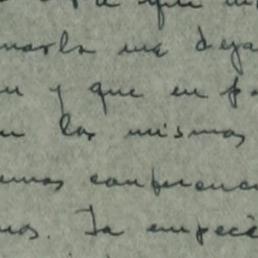 que
narla me deja
n y que en p
n los mismos
emos conferenc
mos. Ya empecé